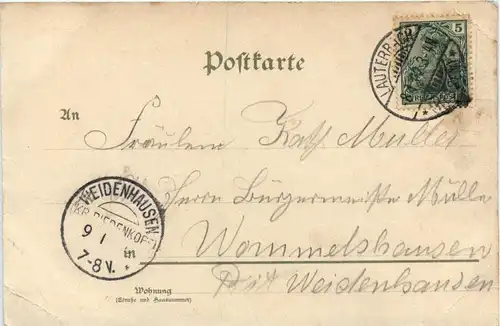 Postkarte
5
LAUTERBACH
An
Fräulein Kath. Müller
Herrn Bürgermeister Müller
WEIDENHAUSEN
BIEDENKOPF
9 1
7-8V.
in
Wommelshausen
Post Weidenhausen
Wohnung
(Straße und Hausnummer)